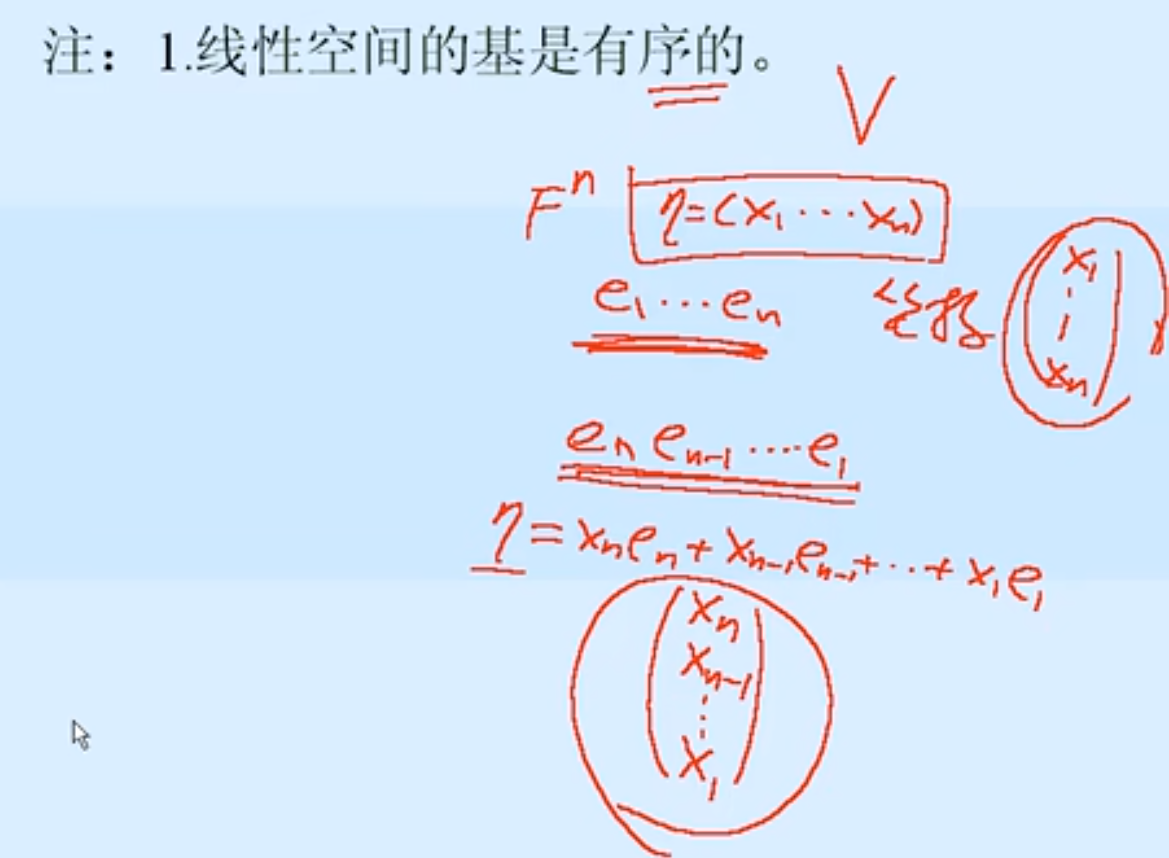 注：1.线性空间的基是有序的。
V
Fⁿ η=(x₁⋯xₙ)
e₁⋯eₙ 坐标 (x₁ ⋮ xₙ)
eₙ eₙ₋₁⋯e₁
η=xₙeₙ+xₙ₋₁eₙ₋₁+⋯+x₁e₁
(xₙ
xₙ₋₁
⋮
x₁)